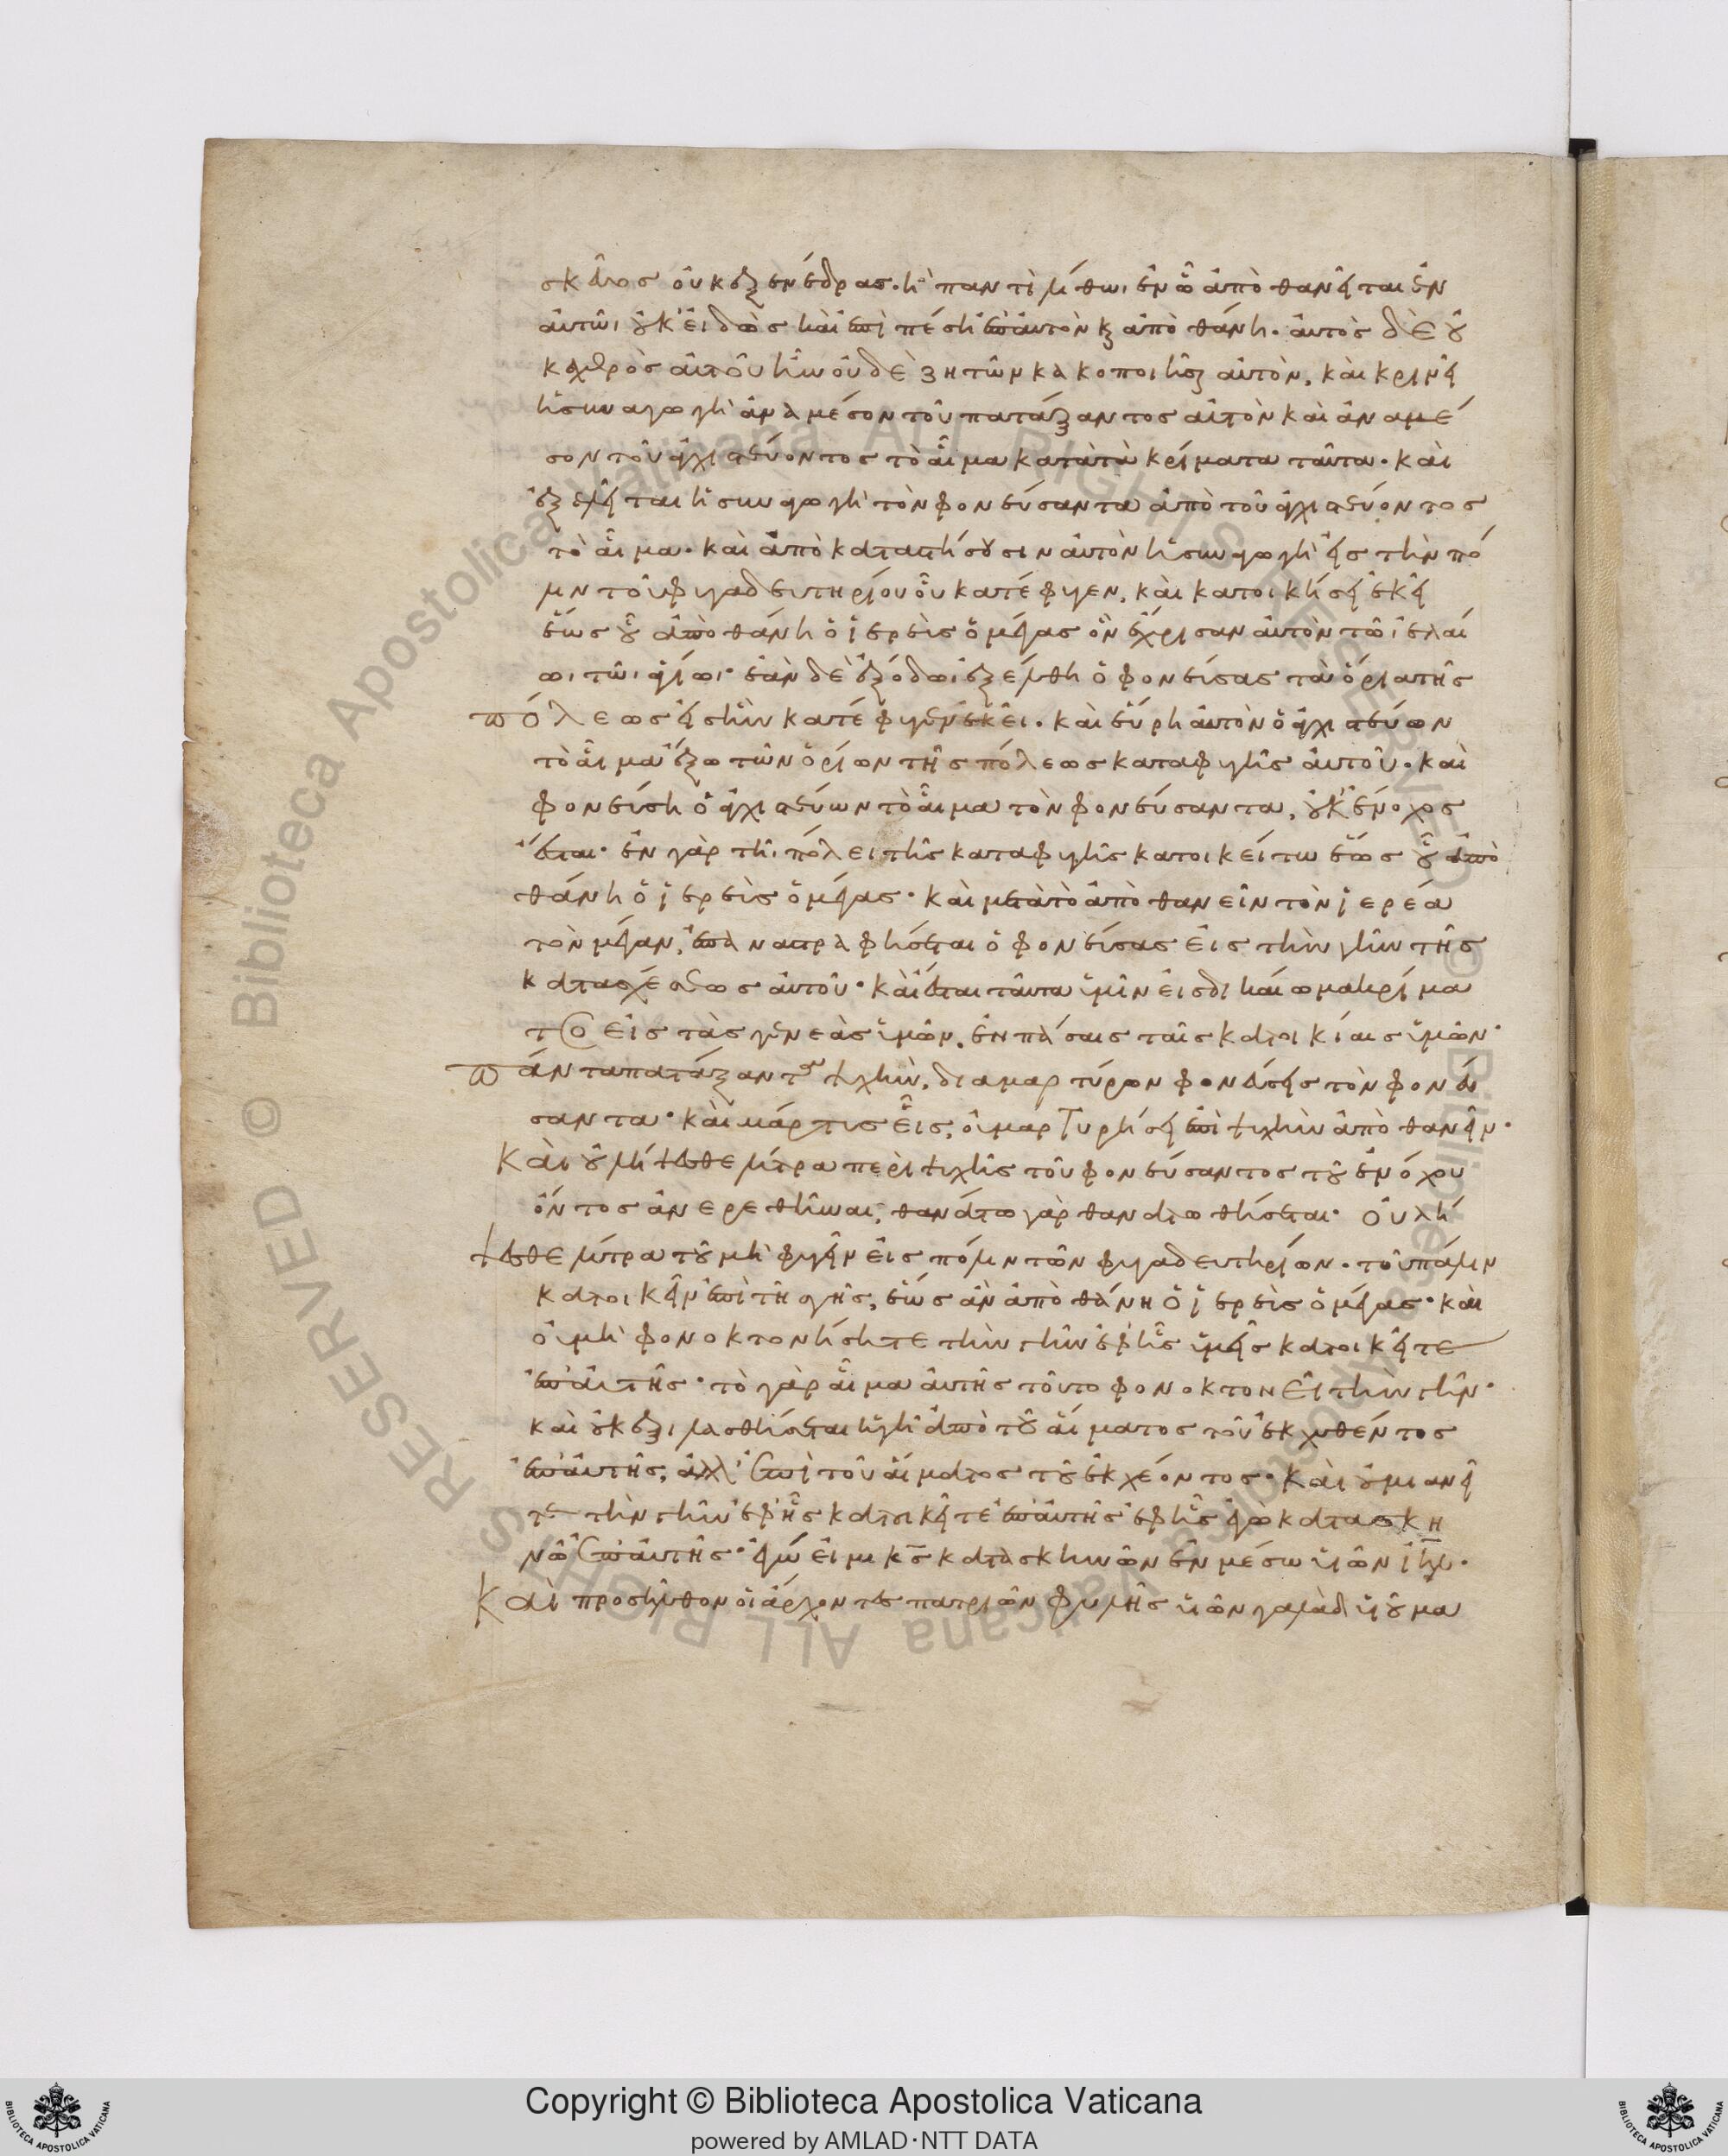 σκεῦος οὐκ ἐξ ἐνέδρας· ἢ παντὶ λίθωι ἐν ὧ ἀποθανεῖται ἐν
αὐτῶι οὐκ εἰδὼς καὶ ἐπιπέση ἐπ' αὐτὸν κ ἀποθάνη· αὐτὸς δὲ οὐ
κ ἐχθρὸς αὐτοῦ ἦν οὐδὲ ζητῶν κακοποιῆσαι αὐτὸν, καὶ κρινεῖ
ἡ συναγωγὴ ἀνὰ μέσον τοῦ πατάξαντος αὐτὸν καὶ ἀναμέ
σον τοῦ ἀγχιστεύοντος τὸ αἷμα κατὰ τὰ κρίματα ταῦτα· καὶ
ἐξελεῖται ἡ συναγωγὴ τὸν φονεύσαντα ἀπὸ τοῦ ἀγχιστεύοντος
τὸ αἷμα· καὶ ἀποκαταστήσουσιν αὐτὸν ἡ συναγωγὴ εἰς τὴν πό
λιν τοῦ φυγαδευτηρίου οὗ κατέφυγεν, καὶ κατοικήσει ἐκεῖ
ἕως οὗ ἀποθάνη ὁ ἱερεὺς ὁ μέγας ὃν ἔχρισαν αὐτὸν τῶ ἐλαί
ωι τῶι ἁγίωι· ἐὰν δὲ ἐξόδωι ἐξέλθη ὁ φονεύσας τὰ ὅρια τῆς
πόλεως εἰς ἣν κατέφυγεν ἐκεῖ· καὶ εὕρη αὐτὸν ὁ ἀγχιστεύων
τὸ αἷμα ἔξω τῶν ὁρίων τῆς πόλεως καταφυγῆς αὐτοῦ· καὶ
φονεύση ὁ ἀγχιστεύων τὸ αἷμα τὸν φονεύσαντα, οὐκ ἔνοχος
ἔσται· ἐν γὰρ τῆι πόλει τῆς καταφυγῆς κατοικείτω ἕως οὗ ἀπο
θάνη ὁ ἱερεὺς ὁ μέγας· καὶ μετὰ τὸ ἀποθανεῖν τὸν ἱερέα
τὸν μέγαν, ἐπαναστραφήσεται ὁ φονεύσας εἰς τὴν γῆν τῆς
κατασχέσεως αὐτοῦ· καὶ ἔσται ταῦτα ὑμῖν εἰς δικαίωμα κρίμα
τος εἰς τὰς γενεὰς ὑμῶν, ἐν πάσαις ταῖς κατοικίαις ὑμῶν·
πάντα πατάξαντα ψυχὴν, διὰ μαρτύρων φονεύσεις τὸν φονεύ
σαντα· καὶ μάρτυς εἷς, οὐ μαρτυρήσει ἐπὶ ψυχὴν ἀποθανεῖν·
Καὶ οὐ λήψεσθε λύτρα περὶ ψυχῆς τοῦ φονεύσαντος τοῦ ἐνόχου
ὄντος ἀνερεθῆναι, θανάτω γὰρ θανατωθήσεται· Οὐ λή
ψεσθε λύτρα τοῦ μὴ φυγεῖν εἰς πόλιν τῶν φυγαδευτηρίων· τοῦ πάλιν
κατοικεῖν ἐπὶ τῆς γῆς, ἕως ἂν ἀποθάνη ὁ ἱερεὺς ὁ μέγας· καὶ
οὐ μὴ φονοκτονήσητε τὴν γῆν ἐφ' ἧς ὑμεῖς κατοικεῖτε
ἐπ' αὐτῆς· τὸ γὰρ αἷμα αὐτῆς τοῦτο φονοκτονεῖ τὴν γῆν·
καὶ οὐκ ἐξιλασθήσεται ἡ γῆ ἀπὸ τοῦ αἵματος τοῦ ἐκχυθέντος
ἐπ' αὐτῆς, ἀλλ' ἐπὶ τοῦ αἵματος τοῦ ἐκχέοντος· Καὶ οὐ μιανεῖ
τε τὴν γῆν ἐφ' ἧς κατοικεῖτε ἐπ' αὐτῆς ἐφ' ἧς ἐγὼ κατασκη
νῶ ἐπ' αὐτῆς· ἐγώ εἰμι κς κατασκηνῶν ἐν μέσω υἱῶν ιηλ·
Καὶ προσῆλθον οἱ ἄρχοντες πατριῶν φυλῆς υἱῶν γαλαὰδ υἱοῦ μα
Copyright © Biblioteca Apostolica Vaticana
powered by AMLAD·NTT DATA